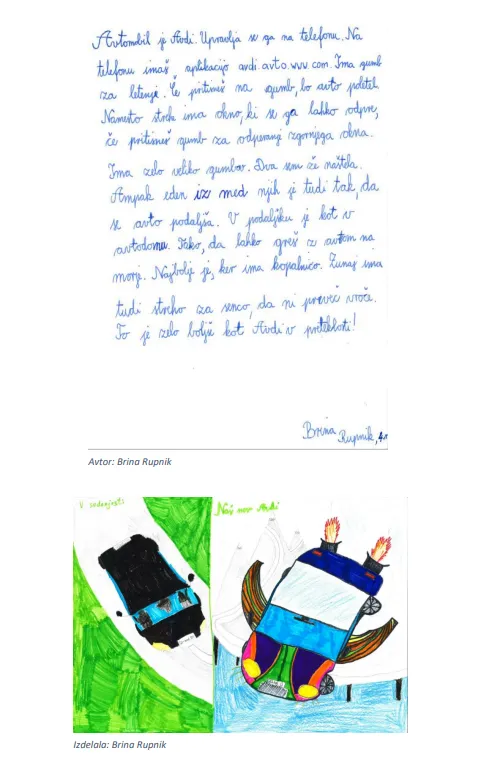 Avtomobil je Avdi. Upravlja se ga na telefonu. Na
telefonu imaš aplikacijo avdi.avto.www.com. Ima gumb
za letenje. Če pritisneš na gumb, bo avto poletel.
Namesto strehe ima okno, ki se ga lahko odpre,
če pritisneš gumb za odpiranje zgornjega okna.
Ima zelo veliko gumbov. Dva sem že naštela.
Ampak eden iz med njih je tudi tak, da
se avto podaljša. V podaljšku je kot v
avtodomu. Tako, da lahko greš z avtom na
morje. Najbolje je, ker ima kopalnico. Zunaj ima
tudi streho za senco, da ni preveč vroče.
To je zelo boljše kot Avdi v preteklosti!
Brina Rupnik, 4.
Avtor: Brina Rupnik
V sedanjosti
Naš nov Avdi
Izdelala: Brina Rupnik